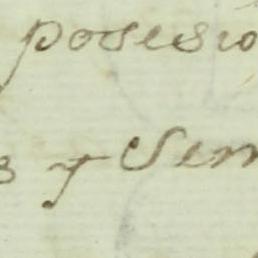 posesio
s y Sem